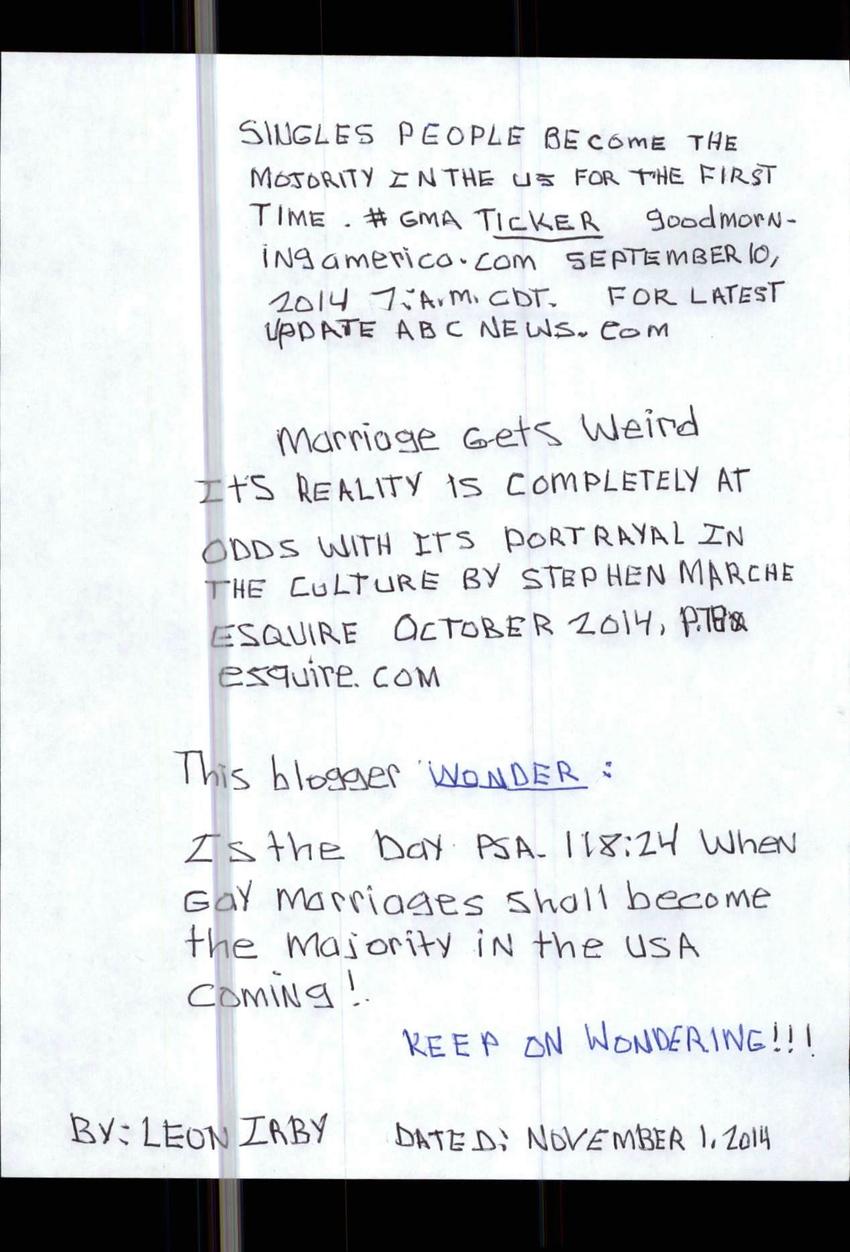 SINGLES PEOPLE BECOME THE
MOJORITY IN THE US FOR THE FIRST
TIME . # GMA TICKER goodmorn-
ingamerica.com SEPTEMBER 10,
2014 7:A.M. CDT. FOR LATEST
UPDATE ABC NEWS.com
Marriage Gets Weird
ItS REALITY IS COMPLETELY AT
ODDS WITH ITS PORTRAYAL IN
THE CULTURE BY STEPHEN MARCHE
ESQUIRE OCTOBER 2014,
esquire.COM
This blogger WONDER :
Is the Day PSA. 118:24 When
Gay Marriages shall become
the majority in the USA
coming!.
KEEP ON WONDERING!!!
BY: LEON IRBY DATED: NOVEMBER 1, 2014